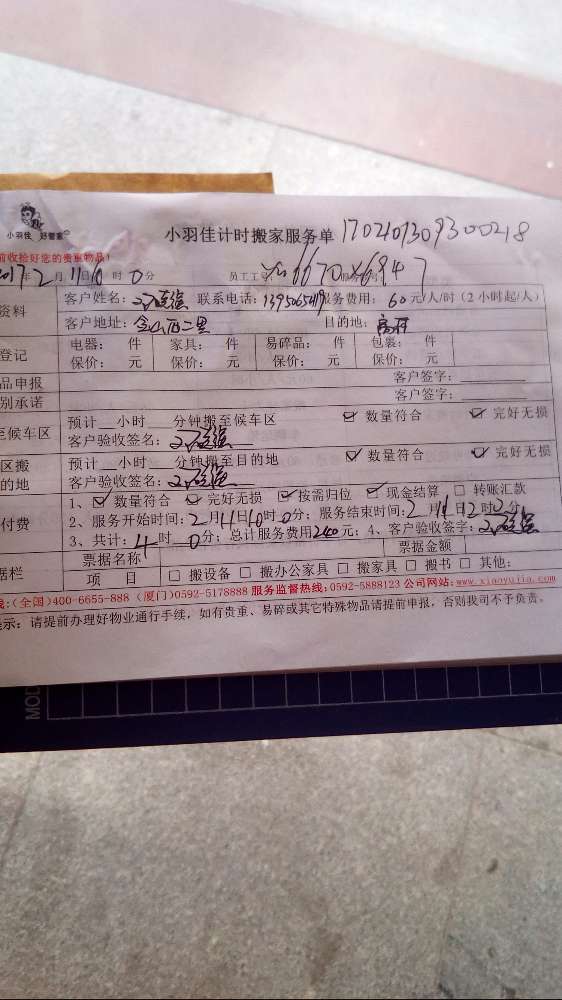 小羽佳 好管家 小羽佳计时搬家服务单 1702101309300218
前收拾好您的贵重物品!
2017年2月11日10时0分 员工工号 6670
资料 客户姓名: 联系电话: 服务费用: 60元/人/时 (2小时起/人)
客户地址: 金山西二里 目的地: 高林
登记 电器: 件 家具: 件 易碎品: 件 包裹: 件
保价: 元 保价: 元 保价: 元 保价: 元
品申报 客户签字:
别承诺 客户签字:
至候车区 预计 小时 分钟搬至候车区 数量符合 完好无损
客户验收签名:
区搬 预计 小时 分钟搬至目的地 数量符合 完好无损
的地 客户验收签名:
1、 数量符合 完好无损 按需归位 现金结算 转账汇款
付费 2、服务开始时间: 2月11日10时0分; 服务结束时间: 2月11日2时0分;
3、共计: 4时0分; 总计服务费用240元; 4、客户验收签字:
票据名称 票据金额
据栏 项 目 搬设备 搬办公家具 搬家具 搬书 其他:
线:(全国)400-6655-888 (厦门)0592-5178888 服务监督热线:0592-5888123 公司网站:www.xiaoyujia.com
提示: 请提前办理好物业通行手续, 如有贵重、易碎或其它特殊物品请提前申报, 否则我司不予负责。
MOD